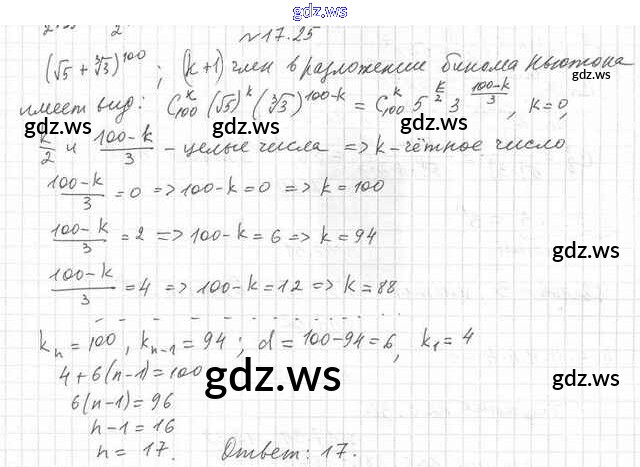 gdz.ws
№17.25
(√5 + ∛3)^100 ; (k+1) член в разложении бинома Ньютона
имеет вид: C_100^k (√5)^k (∛3)^(100-k) = C_100^k 5^(k/2) 3^((100-k)/3), k=0,
gdz.ws gdz.ws gdz.ws gdz.ws
k/2 и (100-k)/3 - целые числа => k - чётное число
(100-k)/3 = 0 => 100-k = 0 => k = 100
(100-k)/3 = 2 => 100-k = 6 => k = 94
gdz.ws
(100-k)/3 = 4 => 100-k = 12 => k = 88
k_n = 100, k_n-1 = 94; d = 100-94 = 6, k_1 = 4
4 + 6(n-1) = 100
gdz.ws gdz.ws
6(n-1) = 96
n-1 = 16
n = 17. Ответ: 17.